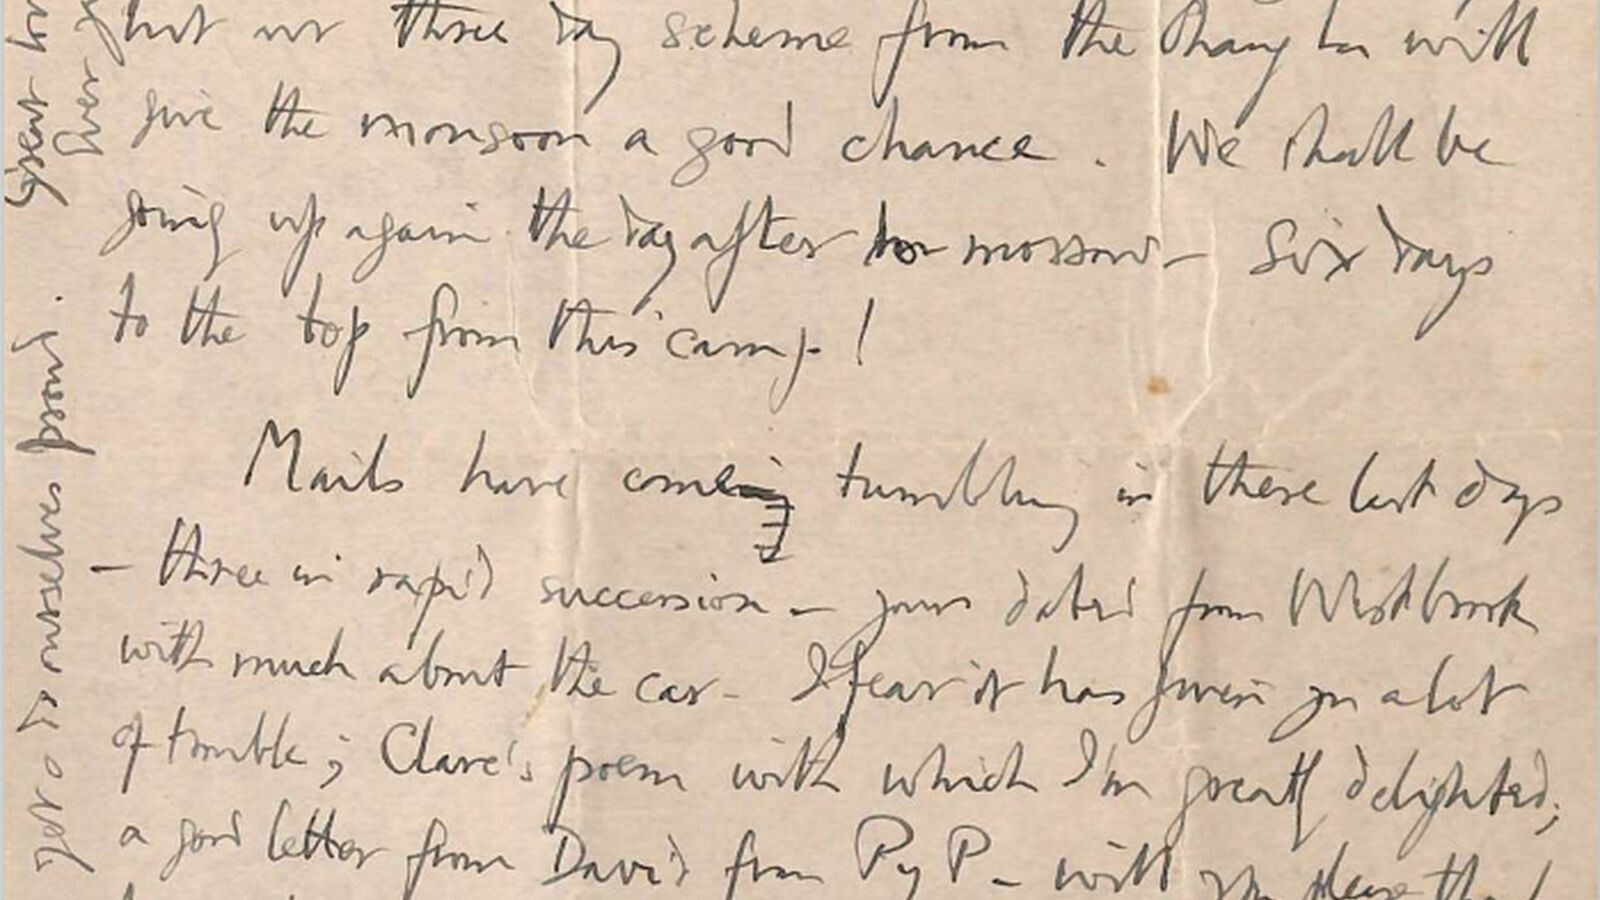 but our three day scheme from the Chang La will
give the monsoon a good chance. We shall be
going up again the day after to morrow – Six days
to the top from this camp!
Mails have come tumbling in these last days
– three in rapid succession – yours dated from Westbrook
with much about the car – I fear it has given you a lot
of trouble; Clare's poem with which I'm greatly delighted;
a good letter from David from PyP – will you please
great
over
yet & do ourselves proud.